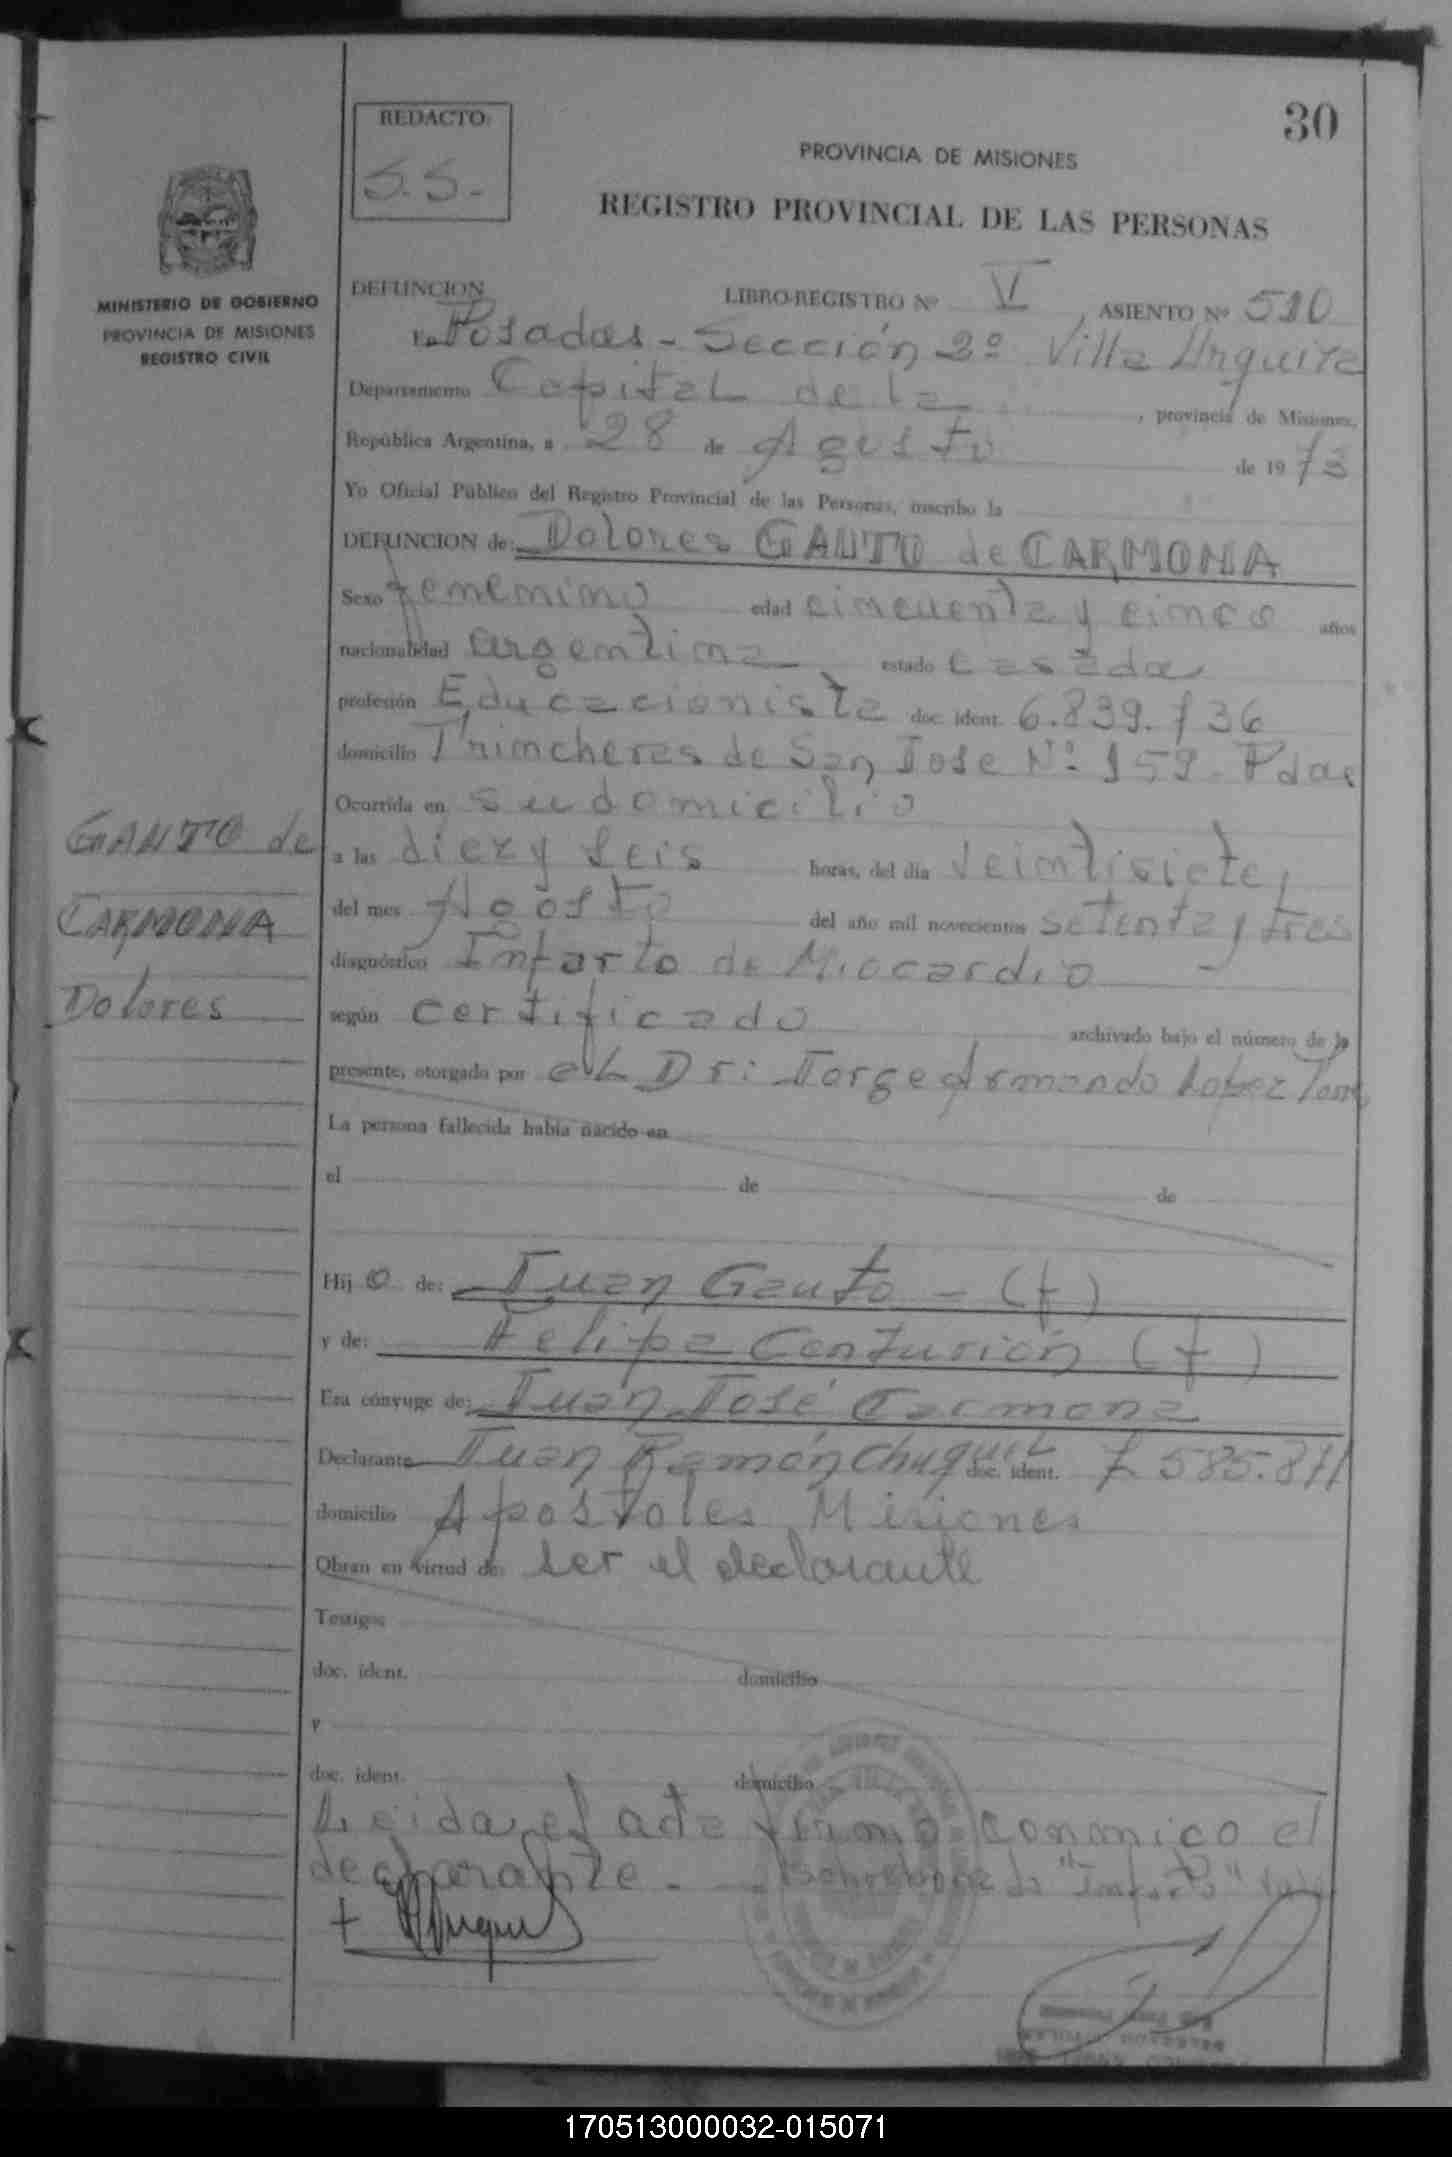 30
REDACTO:
S.S.-
PROVINCIA DE MISIONES
REGISTRO PROVINCIAL DE LAS PERSONAS
MINISTERIO DE GOBIERNO
PROVINCIA DE MISIONES
REGISTRO CIVIL
DEFUNCION LIBRO-REGISTRO Nº V, ASIENTO Nº 510
En Posadas - Sección 2º Villa Urquiza
Departamento Capital de la, provincia de Misiones,
República Argentina, a 28 de Agosto de 1973
Yo Oficial Público del Registro Provincial de las Personas, inscribo la
DEFUNCION de: Dolores GAUTO de CARMONA
Sexo femenino edad cincuenta y cinco años
nacionalidad argentina estado casada
profesión Educacionista doc. ident. 6.839.736
domicilio Trincheras de San Jose Nº 159. Pdas
Ocurrida en su domicilio
a las diez y seis horas, del día Veintisiete,
del mes Agosto del año mil novecientos setenta y tres
diagnóstico Infarto de Miocardio
según certificado archivado bajo el número de la
presente, otorgado por el Dr: Jorge Armando Lopez
La persona fallecida había nacido en
el de de
GAUTO de
CARMONA
Dolores
Hij o de: Juan Gauto - (f)
y de: Felipa Centurión (f)
Era cónyuge de: Juan José Carmona
Declarante Juan Ramón Chuquel doc. ident. 7.585.871
domicilio Apostoles Misiones
Obran en virtud de: ser el declarante
Testigos
doc. ident. domicilio
y
doc. ident. domicilio
Leida el acta firmó conmigo el
declarante. - "Infarto"
170513000032-015071